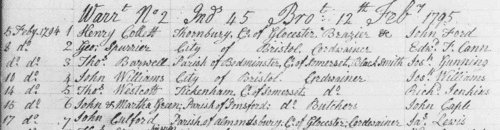 Warr.t No 2 Ind.s 45 Bro.t 12th Feb.y 1795
5 Feb.y 1794 1 Henry Collett Thornbury, C.o of Glocester Brazier &c John Ford
8 d.o 2 Geo. Spurrier City of Bristol Cordwainer Edw.d T. Cann
d.o d.o 3 Tho.s Barwell Parish of Bedminster, C.o of Somerset, Black Smith Jos.h Gunning
10 d.o 4 John Williams City of Bristol Cordwainer Jos.h Williams
14 d.o 5 Tho.s Westcott Tickenham, C. of Somerset d.o Rich.d Jenkins
15 d.o 6 John & Martha Green, Parish of d.o Butchers John Caple
17 d.o 7 John Parish of Almondsbury, C. of Glocester, Cordwainer Ja.s Lewis